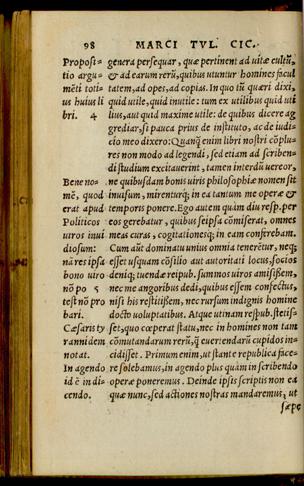 98 MARCI TVL. CIC.
Proposi-
tio argu-
mēti toti-
us huius li
bri. 4
Bene no-
mē, quod
erat apud
Politicos
uiros inui
diosum:
nā res ipsa
bono uiro
nō pōt 5
test nō pro
bari.
Cæsaris ty
rannidem
notat.
In agendo
id ē in di-
cendo.
genera persequar, quæ pertinent ad uitæ cultū,
& ad earum rerū, quibus utuntur homines facul
tatem, ad opes, ad copias. In quo tū quæri dixi,
quid utile, quid inutile: tum ex utilibus quid uti
lius, aut quid maxime utile: de quibus dicere ag
grediar, si pauca prius de instituto, ac de iudi-
cio meo dixero: Quanꝗ̃ enim libri nostri cōplu-
res non modo ad legendi, sed etiam ad scriben-
di studium excitauerint, tamen interdū uereor,
ne quibusdam bonis uiris philosophiæ nomen sit
inuisum, mirenturꝗ; in ea tantum me operæ &
temporis ponere. Ego autem quàm diu resp. per
eos gerebatur, quibus seipsa cōmiserat, omnes
meas curas, cogitationesꝗ; in eam conferebam.
Cum aūt dominatu unius omnia tenerētur, neꝗ;
esset usquam cōsilio aut autoritati locus, socios
deniꝗ; tuendæ reipub. summos uiros amisissem,
nec me angoribus dedi, quibus essem confectus,
nisi his restitissem, nec rursum indignis homine
docto uoluptatibus. Atque utinam respub. stetis-
set, quo cœperat statu, nec in homines non tam
cōmutandarum rerū, ꝗ̃ euertendarū cupidos in-
cidisset. Primum enim, ut stante republica face-
re solebamus, in agendo plus quàm in scribendo
operæ poneremus. Deinde ipsis scriptis non ea
quæ nunc, sed actiones nostras mandaremus, ut
sæpe